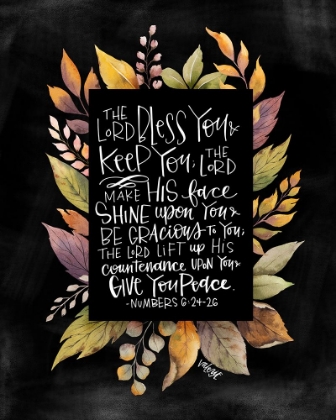 THE LORD BLESS YOU &
KEEP YOU; THE LORD
MAKE HIS face
SHINE upon YOU &
BE GRACIOUS to YOU;
THE LORD LIFT up HIS
countenance UPON YOU &
GIVE YOU PEACE.
-NUMBERS 6:24-26